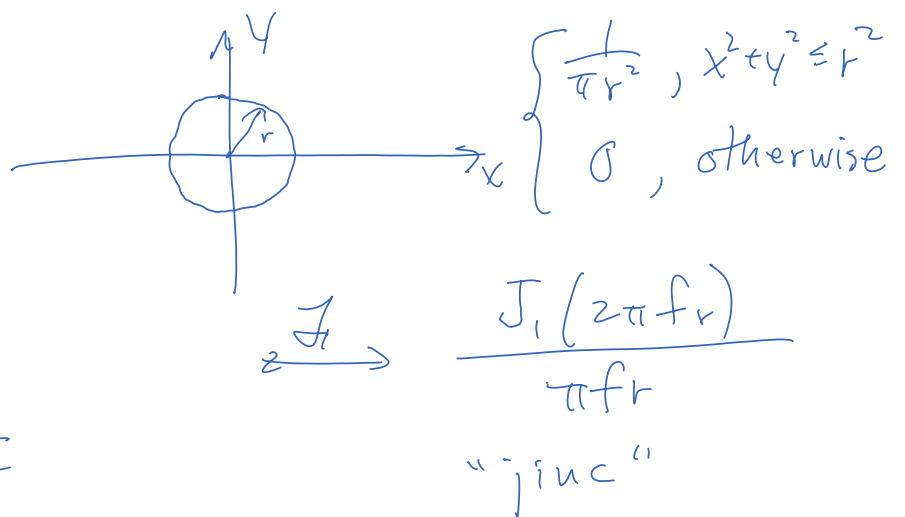 Y
r
x
{ 1/(πr²) , x²+y² ≤ r²
0 , otherwise
ℱ
J₁(2πfr)
πfr
"jinc"